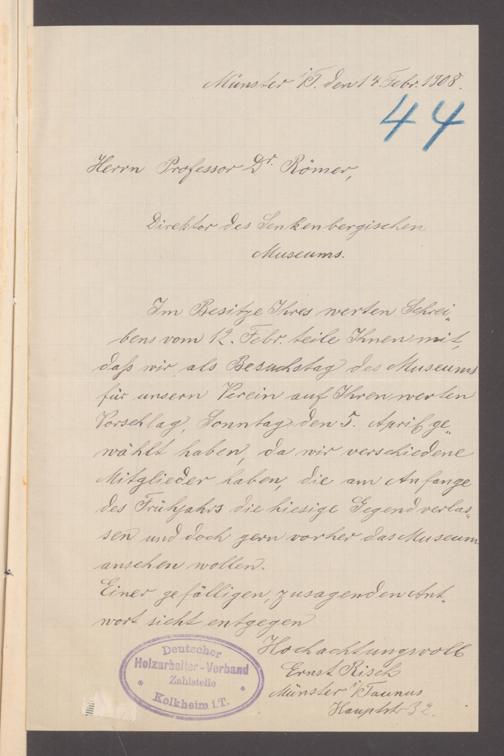 Münster i/T. den 14 Febr. 1908.
44
Herrn Professor Dr. Römer,
Direktor des Senkenbergischen
Museums.
Im Besitze Ihres werten Schrei-
bens vom 12. Febr. teile Ihnen mit,
daß wir als Besuchstag des Museums
für unsern Verein auf Ihren werten
Vorschlag, Sonntag den 5. April ge-
wählt haben, da wir verschiedene
Mitglieder haben, die am Anfange
des Frühjahrs die hiesige Gegend verlas-
sen und doch gern vorher das Museum
ansehen wollen.
Einer gefälligen, zusagenden Ant-
wort sieht entgegen
Hochachtungsvoll
Ernst Risch
Münster i/Taunus
Hauptstr 32.
Deutscher
Holzarbeiter-Verband
Zahlstelle
Kelkheim i.T.